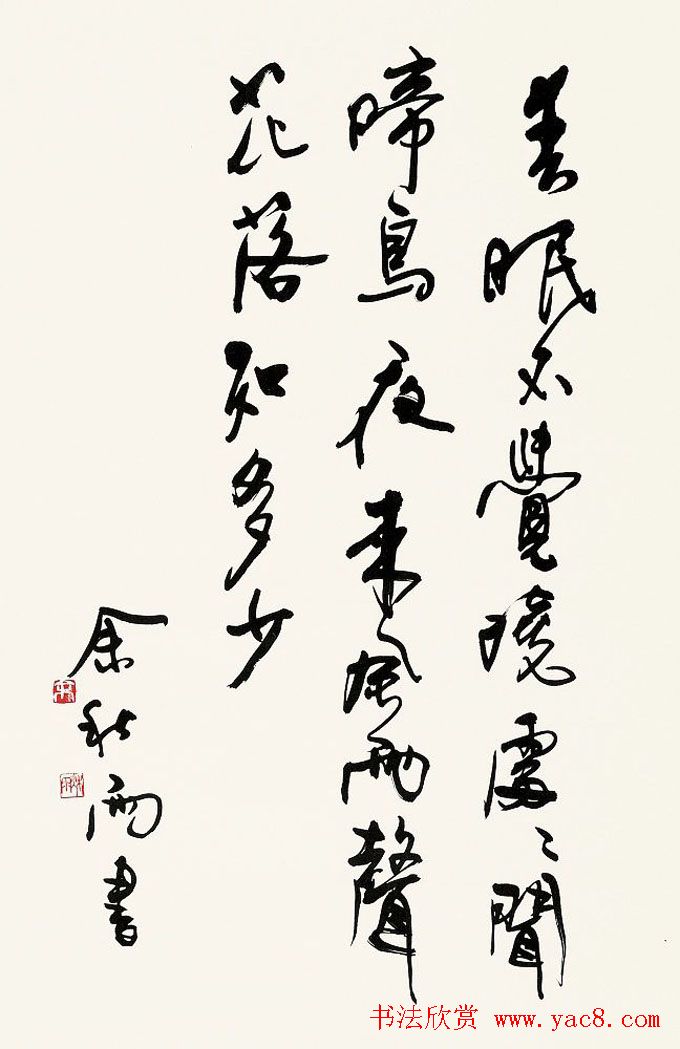 春眠不覺曉處〻聞
啼鳥夜來風雨聲
花落知多少
余秋雨書
书法欣赏 www.yac8.com